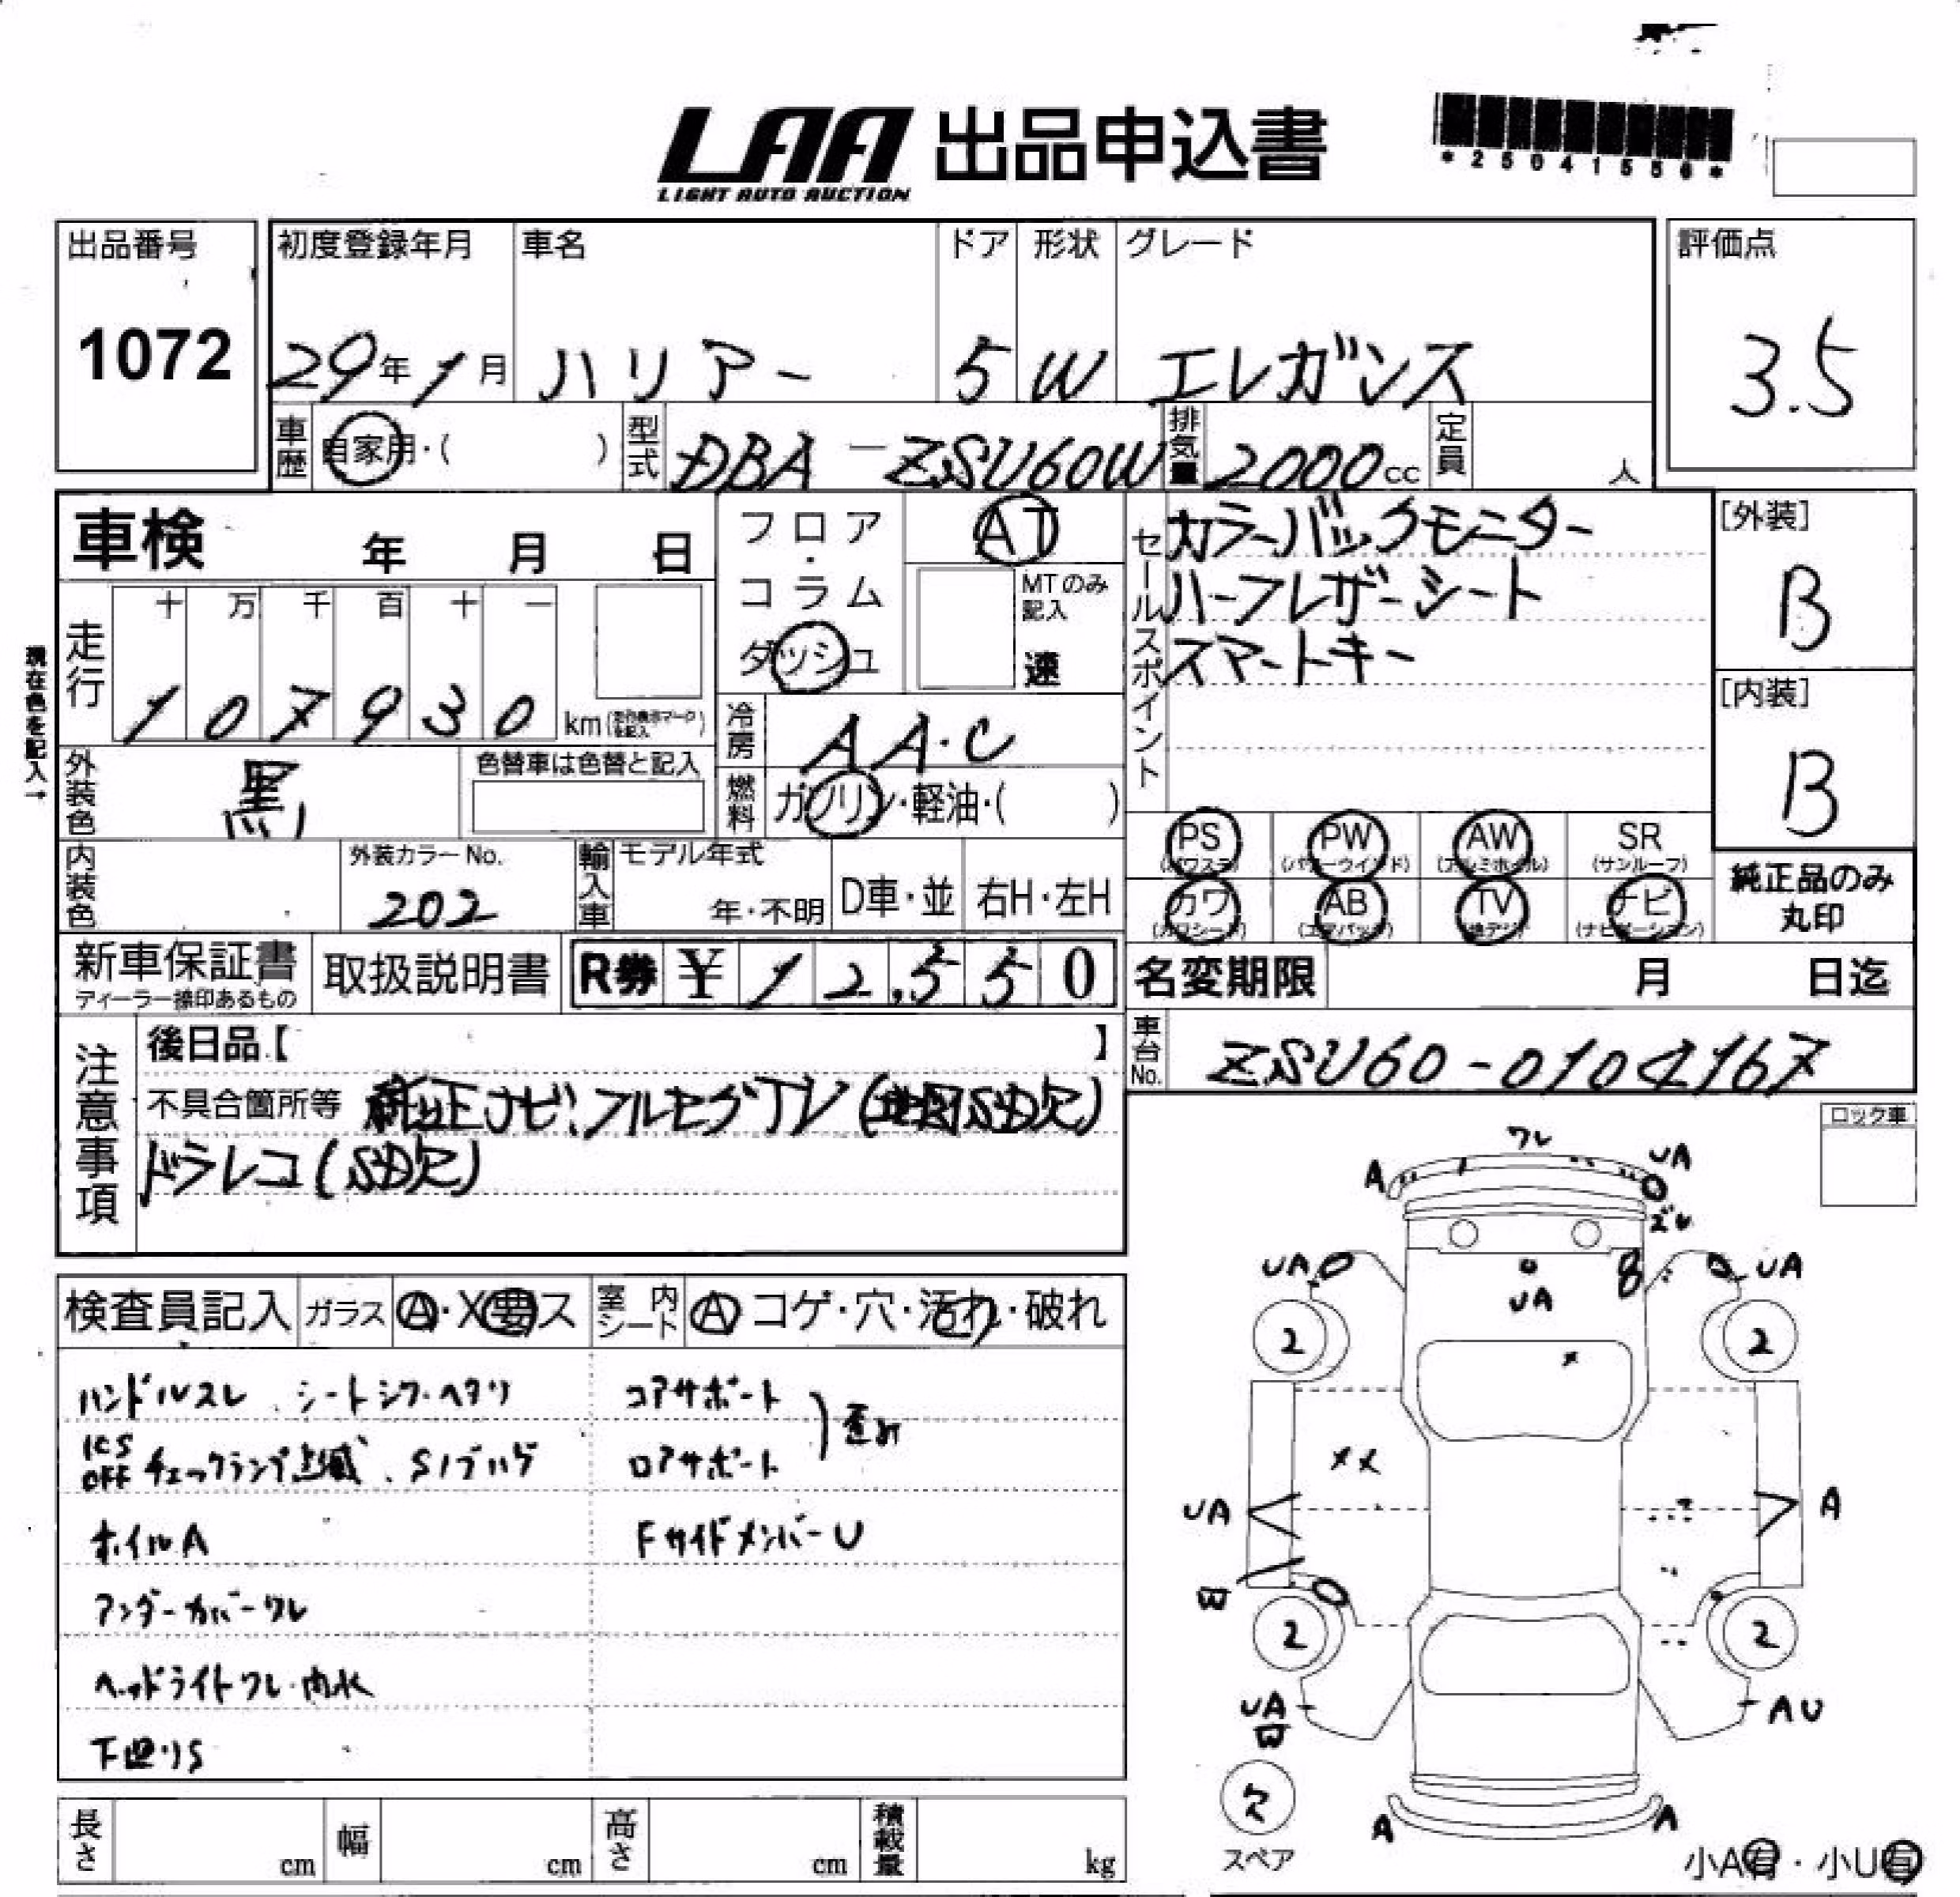 LAA 出品申込書
LIGHT AUTO AUCTION
*25041556*
出品番号
1072
初度登録年月 車名 ドア 形状 グレード
29年1月 ハリアー 5 W エレガンス
評価点
3.5
車歴 自家用・( ) 型式 DBA-ZSU60W 排気量 2000cc 定員 人
車検 年 月 日
フロア・コラム ダッシュ
AT
MTのみ記入
速
セールスポイント
カラーバックモニター
ハーフレザーシート
スマートキー
[外装]
B
[内装]
B
現在色を記入→
走行 十 万 千 百 十 一
1 0 7 9 3 0 km
冷房 AA・C
外装色 黒 色替車は色替と記入
燃料 ガソリン・軽油・( )
PS (パワステ) PW (パワーウインド) AW (アルミホイル) SR (サンルーフ)
カワ (カワシート) AB (エアバッグ) TV (地デジ) ナビ (ナビゲーション)
純正品のみ
丸印
内装色 外装カラーNo. 202 輸入車 モデル年式 年・不明 D車・並 右H・左H
新車保証書 ディーラー捺印あるもの 取扱説明書 R券 ¥ 12,550
名変期限 月 日迄
車台No. ZSU60-0104167
注意事項
後日品【 】
不具合箇所等 純正ナビ、フルセグTV(地図SD欠)
ドラレコ(SD欠)
ロック車
検査員記入 ガラス A・X要ス 室内シート A コゲ・穴・汚れ・破れ
ハンドルスレ、シートシワ・ヘタリ コアサポート
歪み
ICS OFF チェックランプ点滅、Sノブハゲ ロアサポート
ホイルA FサイドメンバーU
アンダーカバーワレ
ヘッドライトワレ・内水
下廻りS
ワレ
A UA
ズレ
UA UA UA
2 2
UA A
2 2
UA AU
欠
スペア
A A
小A有・小U有
長さ cm 幅 cm 高さ cm 積載量 kg